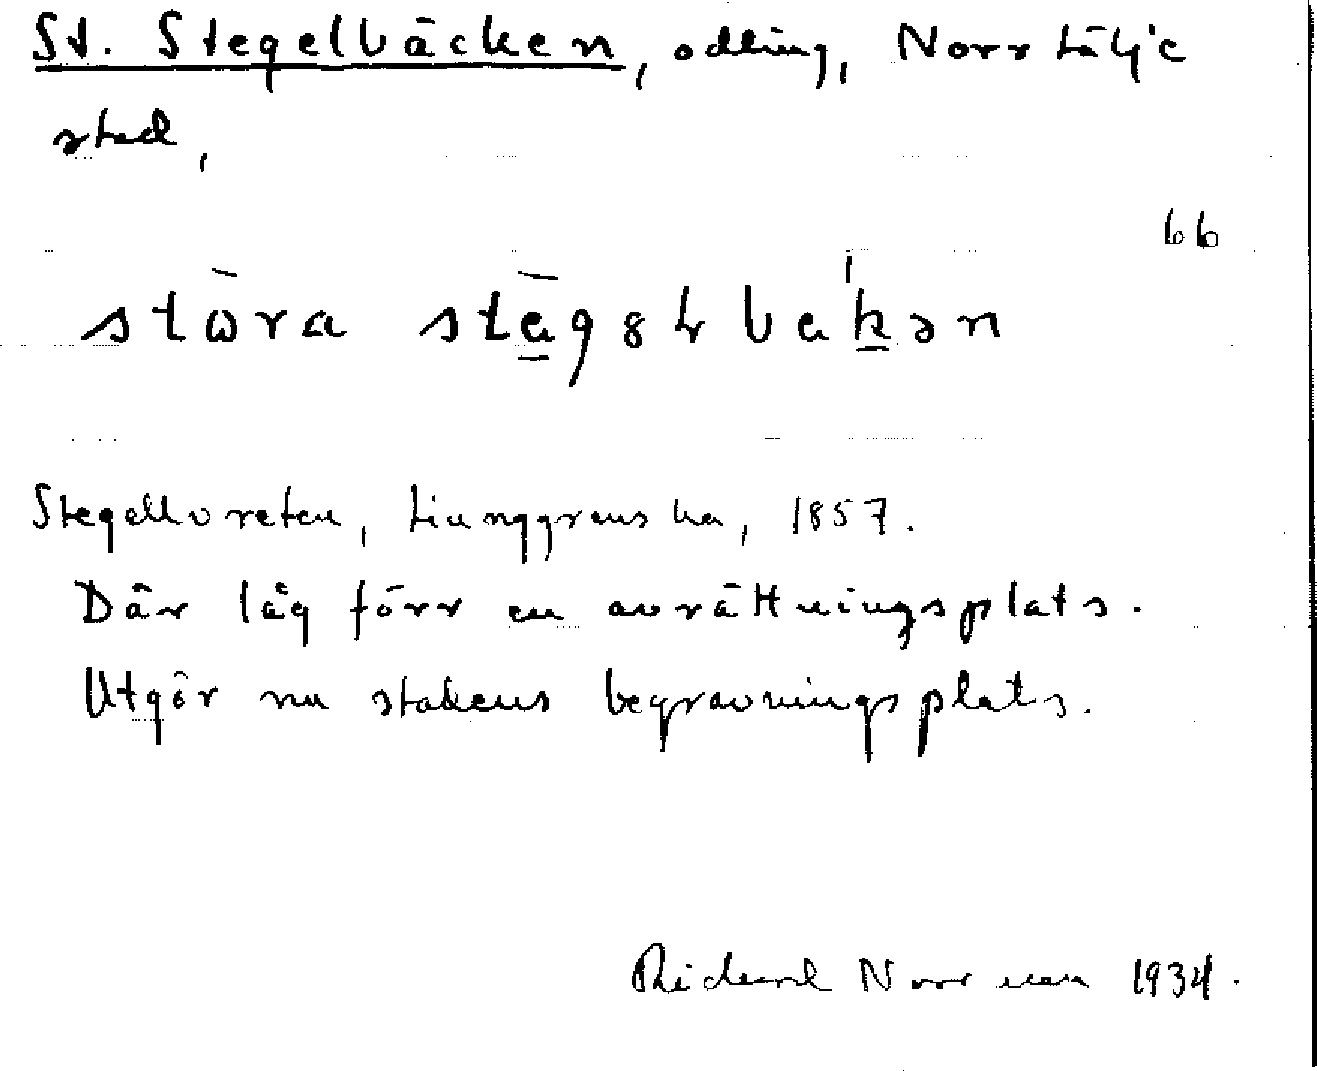 St. Stegelbäcken, odling, Norrtälje
stad,
66
stòra stä̀gəlbakən
Stegelkvreten, Liunggrens ka, 1857.
Där låg förr en avrättningsplats.
Utgör nu stadens begravningsplats.
Rickard Norrman 1934.